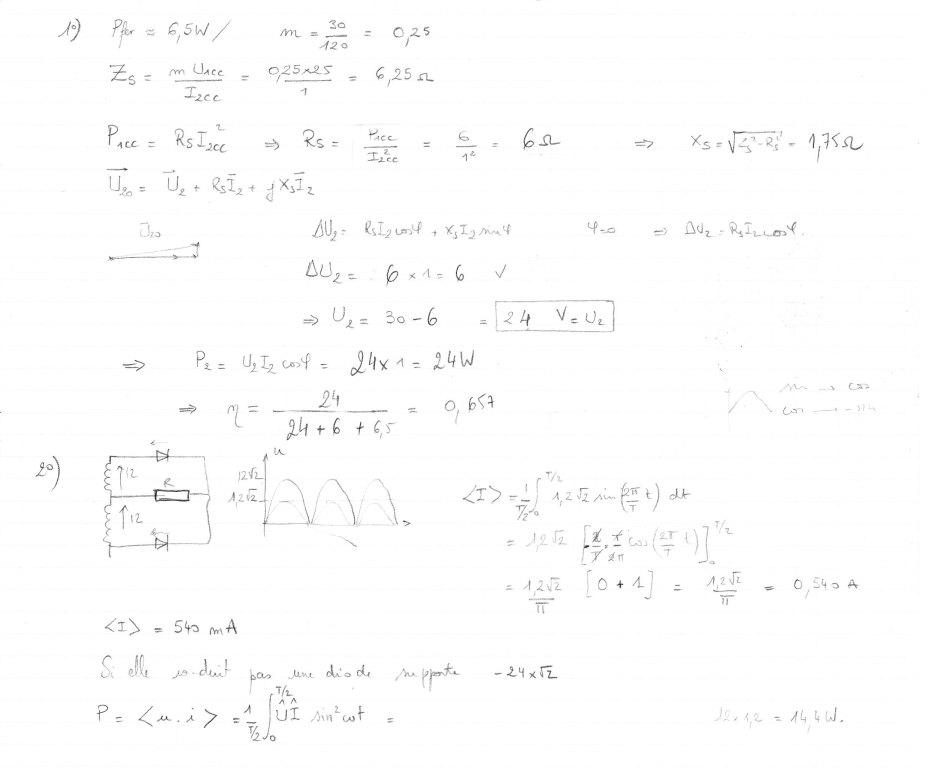 1°) Pfer ≈ 6,5W / m = 30/120 = 0,25
Zs = m U1cc / I2cc = 0,25×25 / 1 = 6,25 Ω
P1cc = Rs I2cc² ⇒ Rs = P1cc / I2cc² = 6 / 1² = 6 Ω ⇒ Xs = √(Zs² - Rs²) = 1,75 Ω
U20 = U2 + Rs I2 + j Xs I2
U20 ΔU2 = Rs I2 cos φ + Xs I2 sin φ φ=0 ⇒ ΔU2 = Rs I2 cos φ.
ΔU2 = 6 × 1 = 6 V
⇒ U2 = 30 - 6 = 24 V = U2
⇒ P2 = U2 I2 cos φ = 24 × 1 = 24 W
sin → cos
cos → - sin
⇒ η = 24 / (24 + 6 + 6,5) = 0,657
2°) 12 R 12
u 12√2 1,2√2
<I> = 1/(T/2) ∫₀^(T/2) 1,2√2 sin(2π/T t) dt
= 1,2√2 [-2/T × T/2π cos(2π/T t)]₀^(T/2)
= 1,2√2/π [0 + 1] = 1,2√2/π = 0,540 A
<I> = 540 mA
Si elle conduit pas une diode supporte - 24 × √2
P = <u.i> = 1/(T/2) ∫₀^(T/2) Û Î sin² ωt = 12 × 1,2 = 14,4 W.